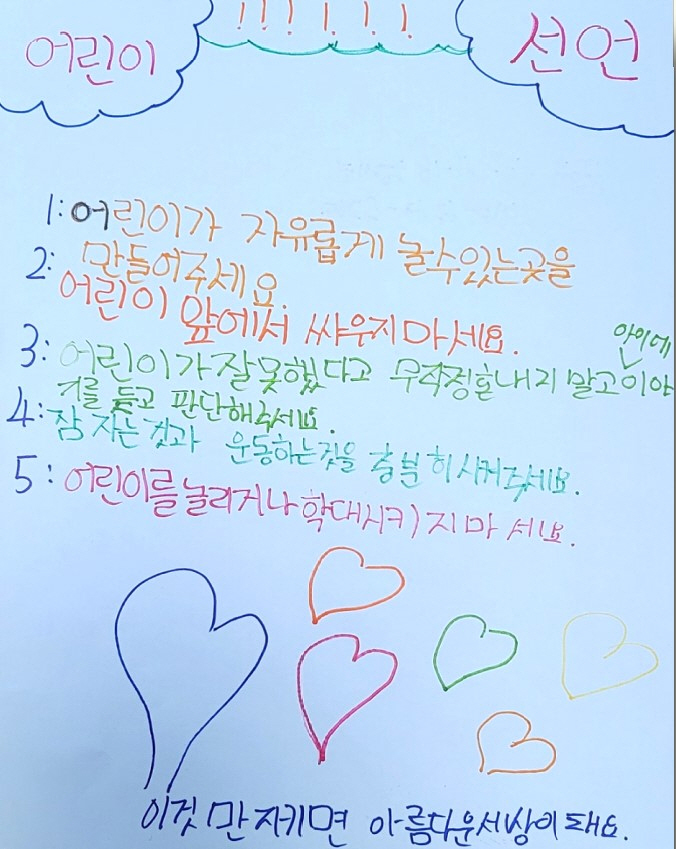 어린이 !!!!!! 선언
1: 어린이가 자유롭게 놀수있는곳을
만들어주세요.
2: 어린이 앞에서 싸우지마세요.
3: 어린이가 잘못했다고 무작정혼내지 말고 아이에 이야
기를 듣고 판단해주세요.
4: 잠 자는것과 운동하는것을 충분히시켜주세요.
5: 어린이를놀리거나 학대시키지마세요.
이것만지키면 아름다운세상이돼요.